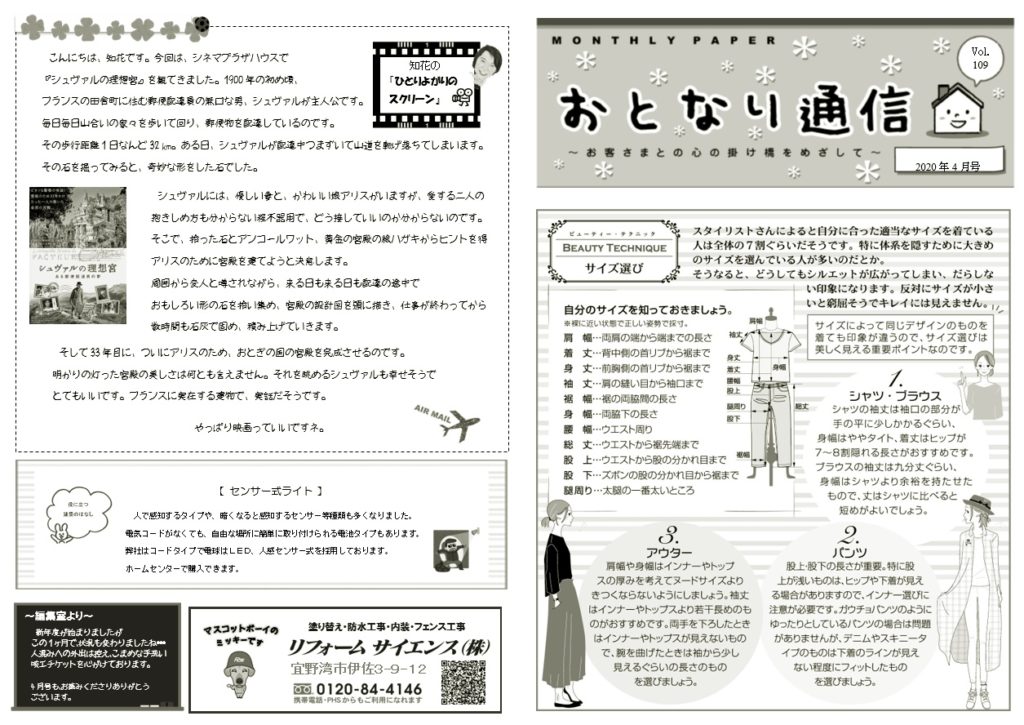 MONTHLY PAPER
Vol.
109
おとなり通信
～お客さまとの心の掛け橋をめざして～
2020年4月号
こんにちは、知花です。今回は、シネマプラザハウスで
『シュヴァルの理想宮』を観てきました。1900年の初め頃、
フランスの田舎町に住む郵便配達員の無口な男、シュヴァルが主人公です。
毎日毎日山合いの家々を歩いて回り、郵便物を配達しているのです。
その歩行距離1日なんと32km。ある日、シュヴァルが配達中つまずいて山道を転げ落ちてしまいます。
その石を掘ってみると、奇妙な形をした石でした。
知花の
「ひとりよがりの
スクリーン」
シュヴァルには、優しい妻と、かわいい娘アリスがいますが、愛する二人の
抱きしめ方も分からない程不器用で、どう接していいのか分からないのです。
そこで、拾った石とアンコールワット、黄金の宮殿の絵ハガキからヒントを得
アリスのために宮殿を建てようと決意します。
周囲から変人と噂されながら、来る日も来る日も配達の途中で
おもしろい形の石を拾い集め、宮殿の設計図を頭に描き、仕事が終わってから
数時間も石灰で固め、積み上げていきます。
シュヴァルの理想宮
そして33年目に、ついにアリスのため、おとぎの国の宮殿を完成させるのです。
明かりの灯った宮殿の美しさは何とも言えません。それを眺めるシュヴァルも幸せそうで
とてもいいです。フランスに実在する建物で、実話だそうです。
やっぱり映画っていいですネ。
AIR MAIL
役に立つ
【センサー式ライト】
人で感知するタイプや、暗くなると感知するセンサー等種類も多くなりました。
電気コードがなくても、自由な場所に簡単に取り付けられる電池タイプもあります。
弊社はコードタイプで電球はLED、人感センサー式を採用しております。
ホームセンターで購入できます。
～編集室より～
新年度が始まりましたが
この1ヶ月で、状況も変わりましたね…
人混みへの外出は控え、こまめな手洗い
咳エチケットを心がけております。
4月号もお読みくださりありがとう
ございます。
マスコットボーイの
ミッキーです
塗り替え・防水工事・内装・フェンス工事
リフォーム サイエンス(株)
宜野湾市伊佐3-9-12
0120-84-4146
携帯電話・PHSからもご利用になれます
ビューティー・テクニック
BEAUTY TECHNIQUE
サイズ選び
スタイリストさんによると自分に合った適当なサイズを着ている
人は全体の7割ぐらいだそうです。特に体系を隠すために大きめ
のサイズを選んでいる人が多いのだとか。
そうなると、どうしてもシルエットが広がってしまい、だらしな
い印象になります。反対にサイズが小さ
いと窮屈そうでキレイには見えません。
サイズによって同じデザインのものを
着ても印象が違うので、サイズ選びは
美しく見える重要ポイントなのです。
自分のサイズを知っておきましょう。
※裸に近い状態で正しい姿勢で採寸。
肩　幅…両肩の端から端までの長さ
着　丈…背中側の首リブから裾まで
身　丈…前胸側の首リブから裾まで
袖　丈…肩の縫い目から袖口まで
裾　幅…裾の両脇間の長さ
身　幅…両脇下の長さ
腰　幅…ウエスト周り
総　丈…ウエストから裾先端まで
股　上…ウエストから股の分かれ目まで
股　下…ズボンの股の分かれ目から裾まで
腿周り…太腿の一番太いところ
肩幅
袖丈
身丈
身幅
着丈
腰幅
股上
腿周り
総丈
股下
裾幅
1.
シャツ・ブラウス
シャツの袖丈は袖口の部分が
手の平に少しかかるぐらい、
身幅はややタイト、着丈はヒップが
7～8割隠れる長さがおすすめです。
ブラウスの袖丈は九分丈ぐらい、
身幅はシャツより余裕を持たせた
もので、丈はシャツに比べると
短めがよいでしょう。
2.
パンツ
股上・股下の長さが重要。特に股
上が浅いものは、ヒップや下着が見え
る場合がありますので、インナー選びに
注意が必要です。ガウチョパンツのように
ゆったりとしているパンツの場合は問題
がありませんが、デニムやスキニータ
イプのものは下着のラインが見え
ない程度にフィットしたもの
を選びましょう。
3.
アウター
肩幅や身幅はインナーやトップ
スの厚みを考えてヌードサイズより
きつくならないようにしましょう。袖丈
はインナーやトップスより若干長めのも
のがおすすめです。両手を下ろしたとき
はインナーやトップスが見えないもの
で、腕を曲げたときは袖から少し
見えるぐらいの長さのもの
を選びましょう。